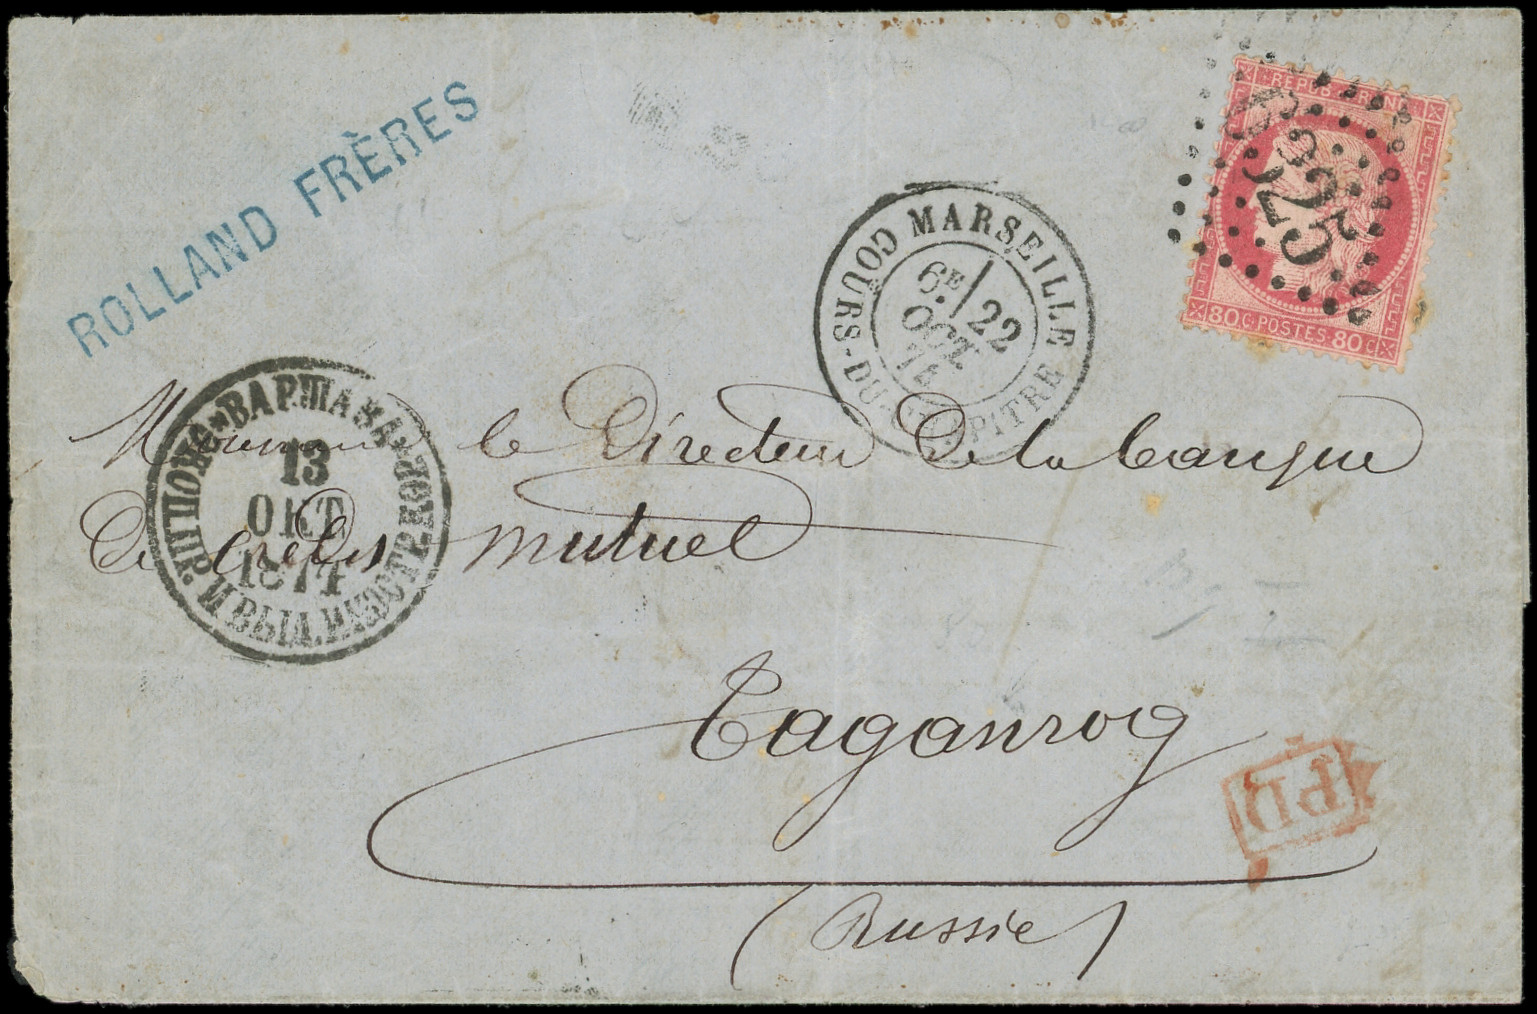 ROLLAND FRÈRES
REPUB. FRANC.
80 C. POSTES. 80 C
MARSEILLE
COURS-DU-CHAPITRE
6E 22
OCT
74
ВАРШАВА
13
ОКТ
1874
Monsieur le Directeur De la banque
De credit mutuel
Taganrog
(Russie)
PD